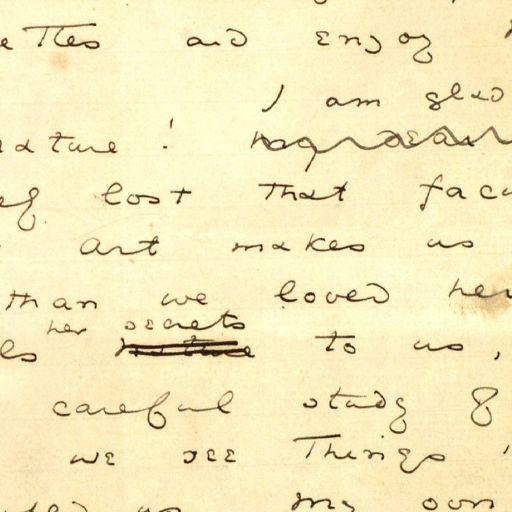 and enjoy
I am glad
nature!
lost that
art makes us
than we loved her
her secrets
to us,
careful study of
we see Things
my own